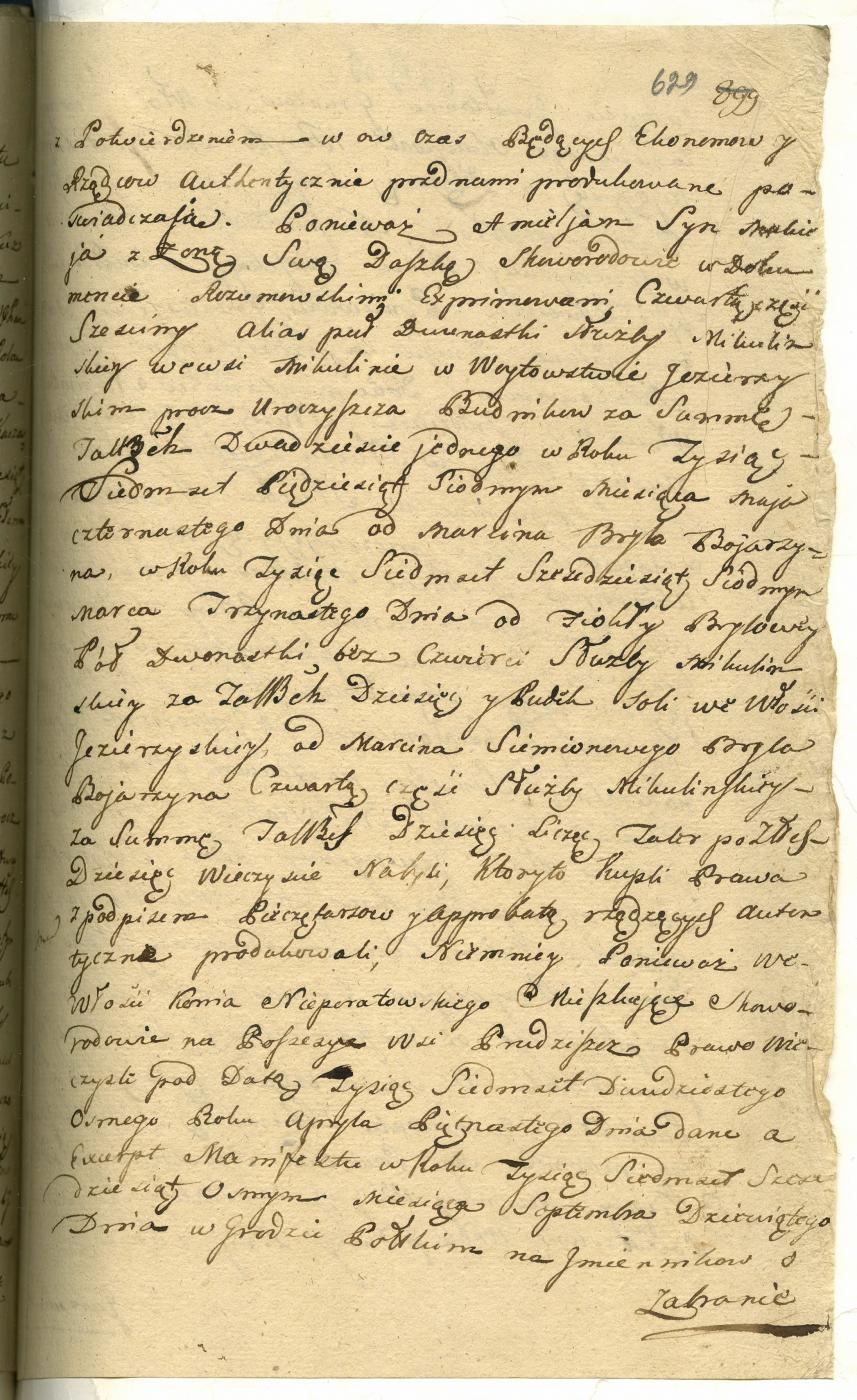 629 899
z Potwierdzeniem w ow czas Będących Ekonomow y
Rządcow Authentycznie przednami produkowane po-
świadczaią. Ponieważ Amieljan Syn
ja z Żoną Swą Daszką Skoworodowie w Doku
mencie Rozumowskim Exprimowani, Czwartą część
Szesciny alias puł Dwunastki Służby Mikulin
skiey wewsi Mikulinie w Woytowstwie Jezierzy
skim procz Uroczyszcza Budnikow za Summę
Dwadziescie jednego w Roku Tysiąc
Siedmset Pięćdziesiąt Siodmym Miesiąca Maja
czternastego Dnia od Marcina Bryla Bojarzy-
na, w Roku Tysiąc Siedmset Szescdziesiąt Siodmym
Marca Trzynastego Dnia od Fiokły Brylowey
Pół Dwonastki bez Czwierci Służby Mikulin
skiey za Dziesięć y Pudek Soli we Włości
Jezierzyskiey, od Marcina Siemionowego Bryla
Bojarzyna Czwartą część Służby Mikulinskiey
za Summę Dziesięć Licząc Taler po
Dziesięć Wieczyscie Nabyli, Ktoryto Kupli Prawa
z podpisem Pieczętarzow y Approbatą rządzących auten
tycznie produkowali, Niemniey Ponieważ we
Włości Konia Nieporatowskiego Mieszkające Skowo-
rodowie na Possesyą Wsi Prudziszcz Prawo Wie-
czyste pod Datą Tysiąc Siedmset Dwudziestego
Osmego Roku Apryla Piętnastego Dnia dane a
Excerpt Manifestu w Roku Tysiąc Siedmset Szesc
dziesiąt Osmym Miesiąca Septembra Dziewiątego
Dnia w Grodzie Połłkim na Jmiennikow o
Zabranie